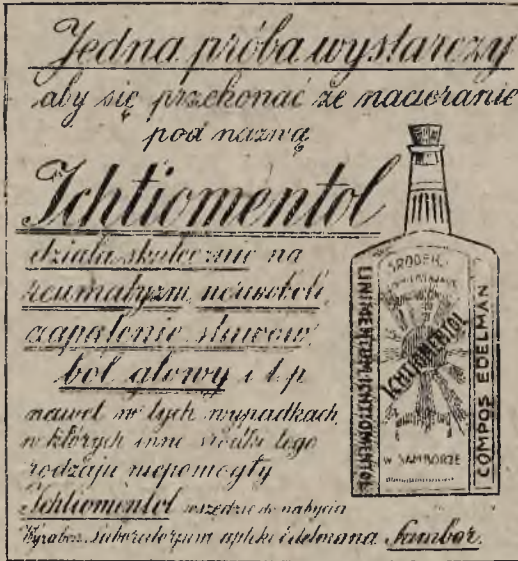 Jedna próba wystarczy
aby się przekonać że nacieranie
pod nazwą
Ichtiomentol
działa skutecznie na
reumatyzm, newrobóle,
zapalenie stawów,
ból głowy i t.p.
nawet w tych wypadkach,
w których inne środki tego
rodzaju niepomogły
Ichtiomentol wszędzie do nabycia
Wyrabia: Laboratorjum apteki Edelmana Sambor.
ŚRODEK
ICHTIOMENTOL
W SAMBORZE
LINIMENTUM ICHTIOMENTOL
COMPOS EDELMAN